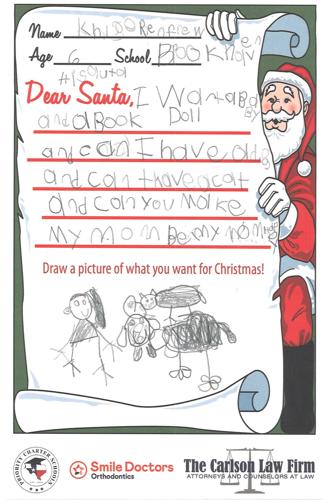 Name
Age 6 School Book
Dear Santa, I Want a
and a BOOK Doll
and can I have a
and can I have a cat
and can you make
my mom be my
Draw a picture of what you want for Christmas!
PRIORITY CHARTER SCHOOLS
Smile Doctors The Carlson Law Firm
Orthodontics ATTORNEYS AND COUNSELORS AT LAW